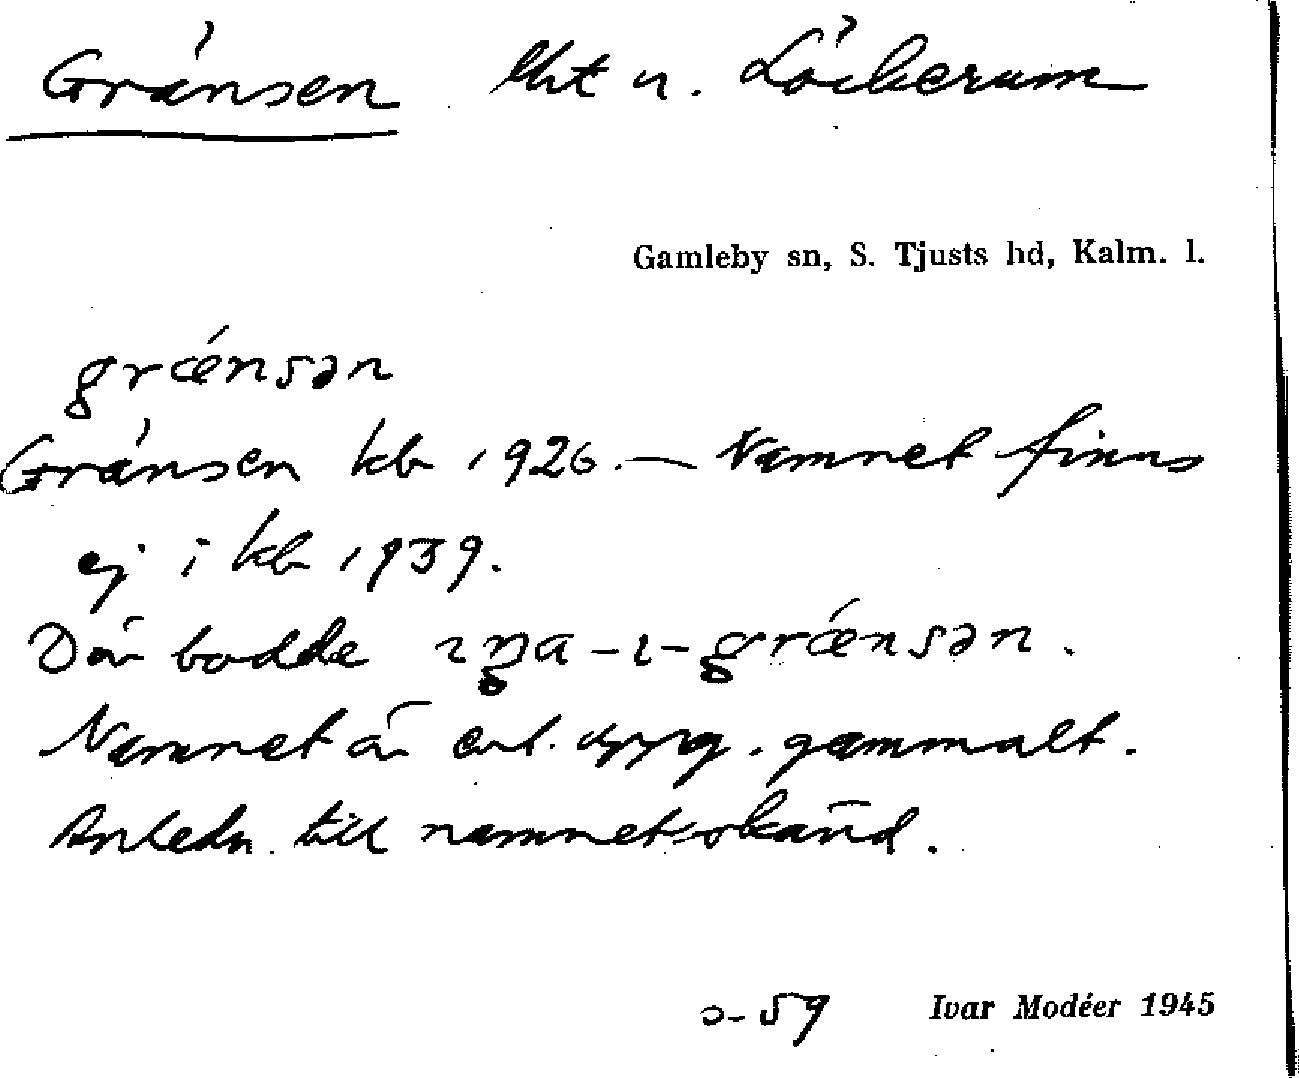 Gränsen lht u. Löckerum
Gamleby sn, S. Tjusts hd, Kalm. l.
grǽnsən
Gränsen kb 1926. — Namnet finns
ej i kb 1939.
Där bodde ıŋa-ı-grǽnsən.
Namnet är enl. uppg. gammalt.
Anledn. till namnet okänd.
Ivar Modéer 1945